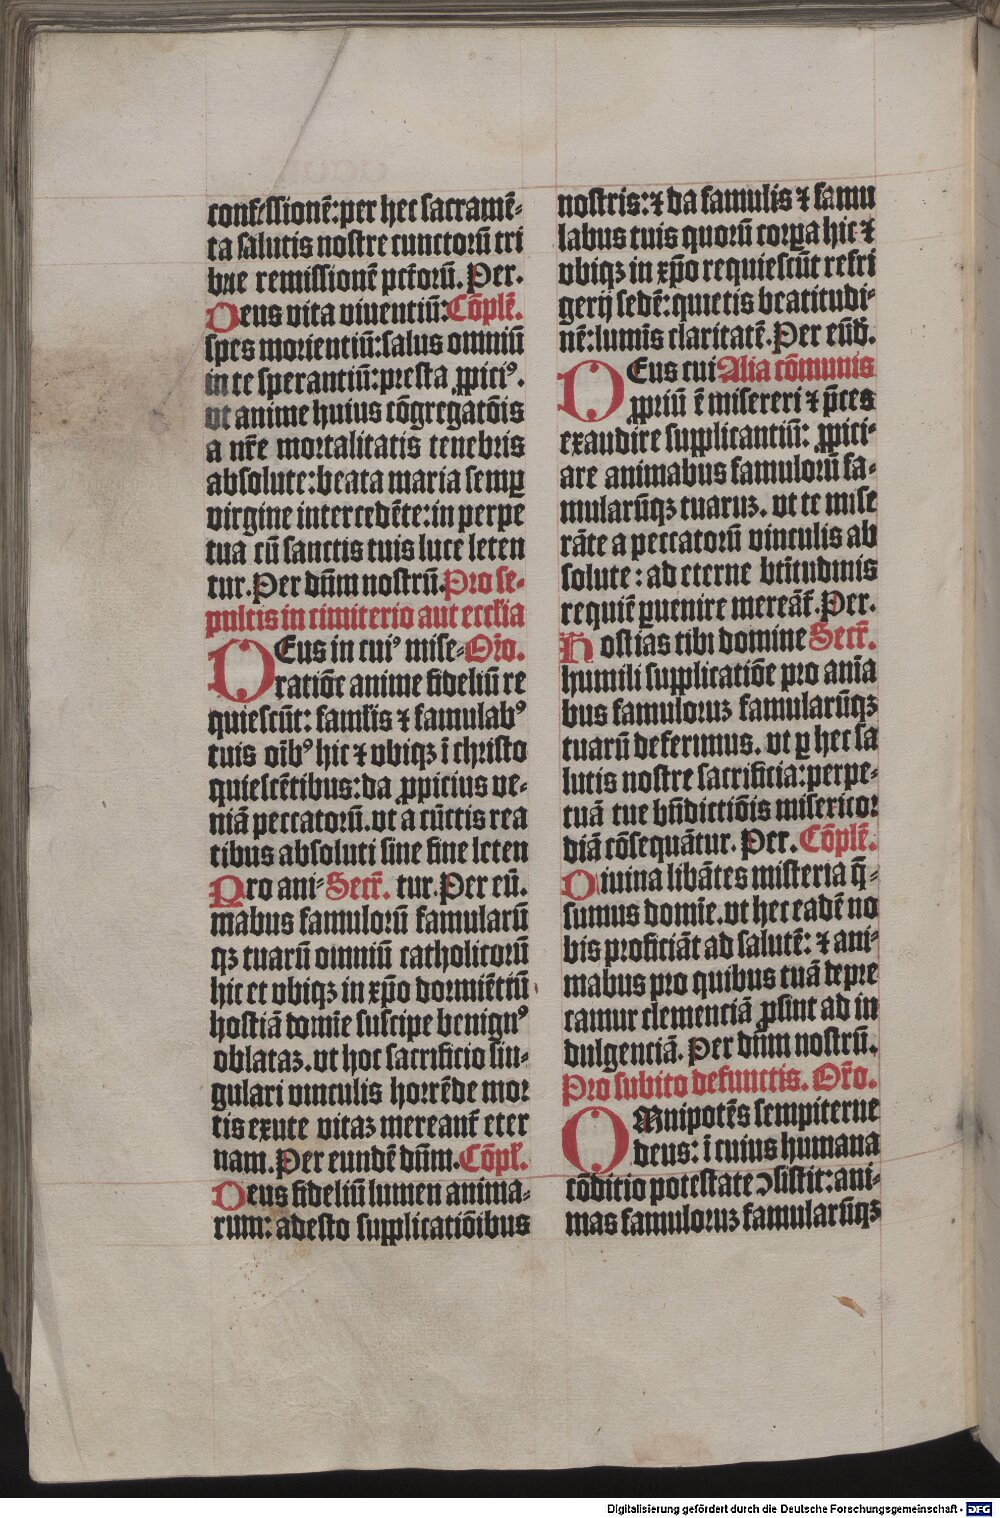 confessionē: per hec sacramē-
ta salutis nostre cunctorū tri
bue remissionē pctōrū. Per.
Deus vita viuentiū: Cōplē.
spes morientiū: salus omniū
in te sperantiū: presta ꝓpiciꝰ.
vt anime huius cōgregatōis
a nr̄e mortalitatis tenebris
absolute: beata maria semꝑ
virgine intercedēte: in perpe
tua cū sanctis tuis luce leten
tur. Per dn̄m nostrū. Pro se-
pultis in cimiterio aut eccl̄ia
DEus in cuiꝰ mise- Oro.
ratiōe anime fideliū re
quiescūt: famlis ⁊ famulabꝰ
tuis oībꝰ hic ⁊ vbiqꝫ ī christo
quiescētibus: da ꝓpicius ve-
niā peccatorū. vt a cūctis rea
tibus absoluti sine fine leten
Pro ani- Secr̄. tur. Per eū.
mabus famulorū famularū
qꝫ tuarū omniū catholicorū
hic et vbiqꝫ in xp̄o dormiētiū
hostiā domīe suscipe benignꝰ
oblataꝫ. vt hoc sacrificio sin-
gulari vinculis horrēde mor
tis exute vitaꝫ mereant̄ eter
nam. Per eundē dn̄m. Cōpl̄.
Deus fideliū lumen anima-
rum: adesto supplicatiōibus
nostris: ⁊ da famulis ⁊ famu
labus tuis quorū corꝑa hic ⁊
vbiqꝫ in xp̄o requiescūt refri
gerij sedē: quietis beatitudi-
nē: lumīs claritatē. Per eūd̄.
DEus cui Alia cōmunis
ꝓpriū ē misereri ⁊ p̄ces
exaudire supplicantiū: ꝓpici-
are animabus famulorū fa-
mularūqꝫ tuaruꝫ. vt te mise
rāte a peccatorū vinculis ab
solute: ad eterne btītudinis
requiē ꝑuenire mereāt̄. Per.
Hostias tibi domine Secr̄.
humili supplicatiōe pro anīa
bus famuloruꝫ famularūqꝫ
tuarū deferimus. vt ꝑ hec sa
lutis nostre sacrificia: perpe-
tuā tue bn̄dictiōis misericor
diā cōsequātur. Per. Cōplē.
Diuina libātes misteria q̄-
sumus domīe. vt hec eadē no
bis proficiāt ad salutē: ⁊ ani-
mabus pro quibus tuā depre
camur clementiā ꝓsint ad in
dulgenciā. Per dn̄m nostrū.
Pro subito defunctis. Or̄o.
OMnipotēs sempiterne
deus: ī cuius humana
cōditio potestate ↄsistit: ani-
mas famuloruꝫ famularūqꝫ
Digitalisierung gefördert durch die Deutsche Forschungsgemeinschaft - DFG